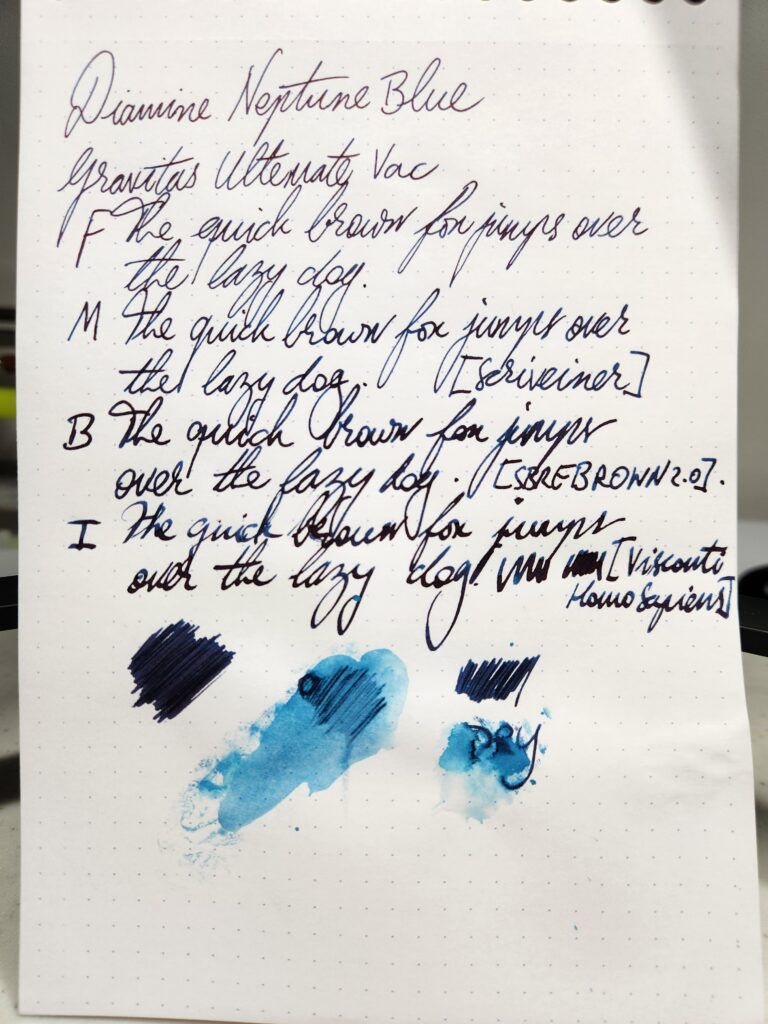 Diamine Neptune Blue
Gravitas Ultemate Vac
F The quick brown fox jumps over
the lazy dog.
M The quick brown fox jumps over
the lazy dog. [Scriveiner]
B The quick brown fox jumps
over the lazy dog. [SBREBROWN 2.0].
I The quick brown fox jumps
over the lazy dog. [Visconti
Homo Sapiens]
DRY